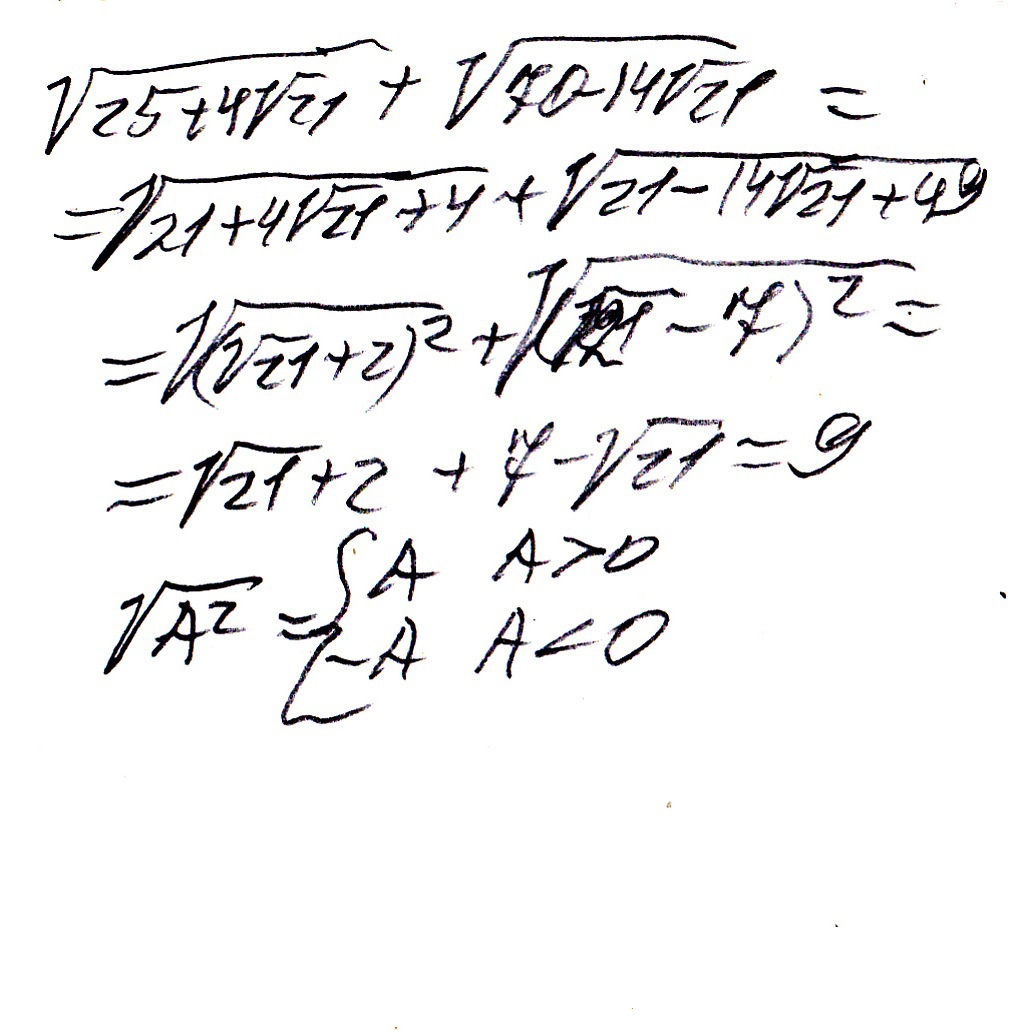 √(25+4√21) + √(70-14√21) =
=√(21+4√21+4) + √(21-14√21+49)
=√((√21+2)²) + √((√21-7)²) =
=√21+2 + 7-√21=9
√(A²) = { A A>0
-A A<0